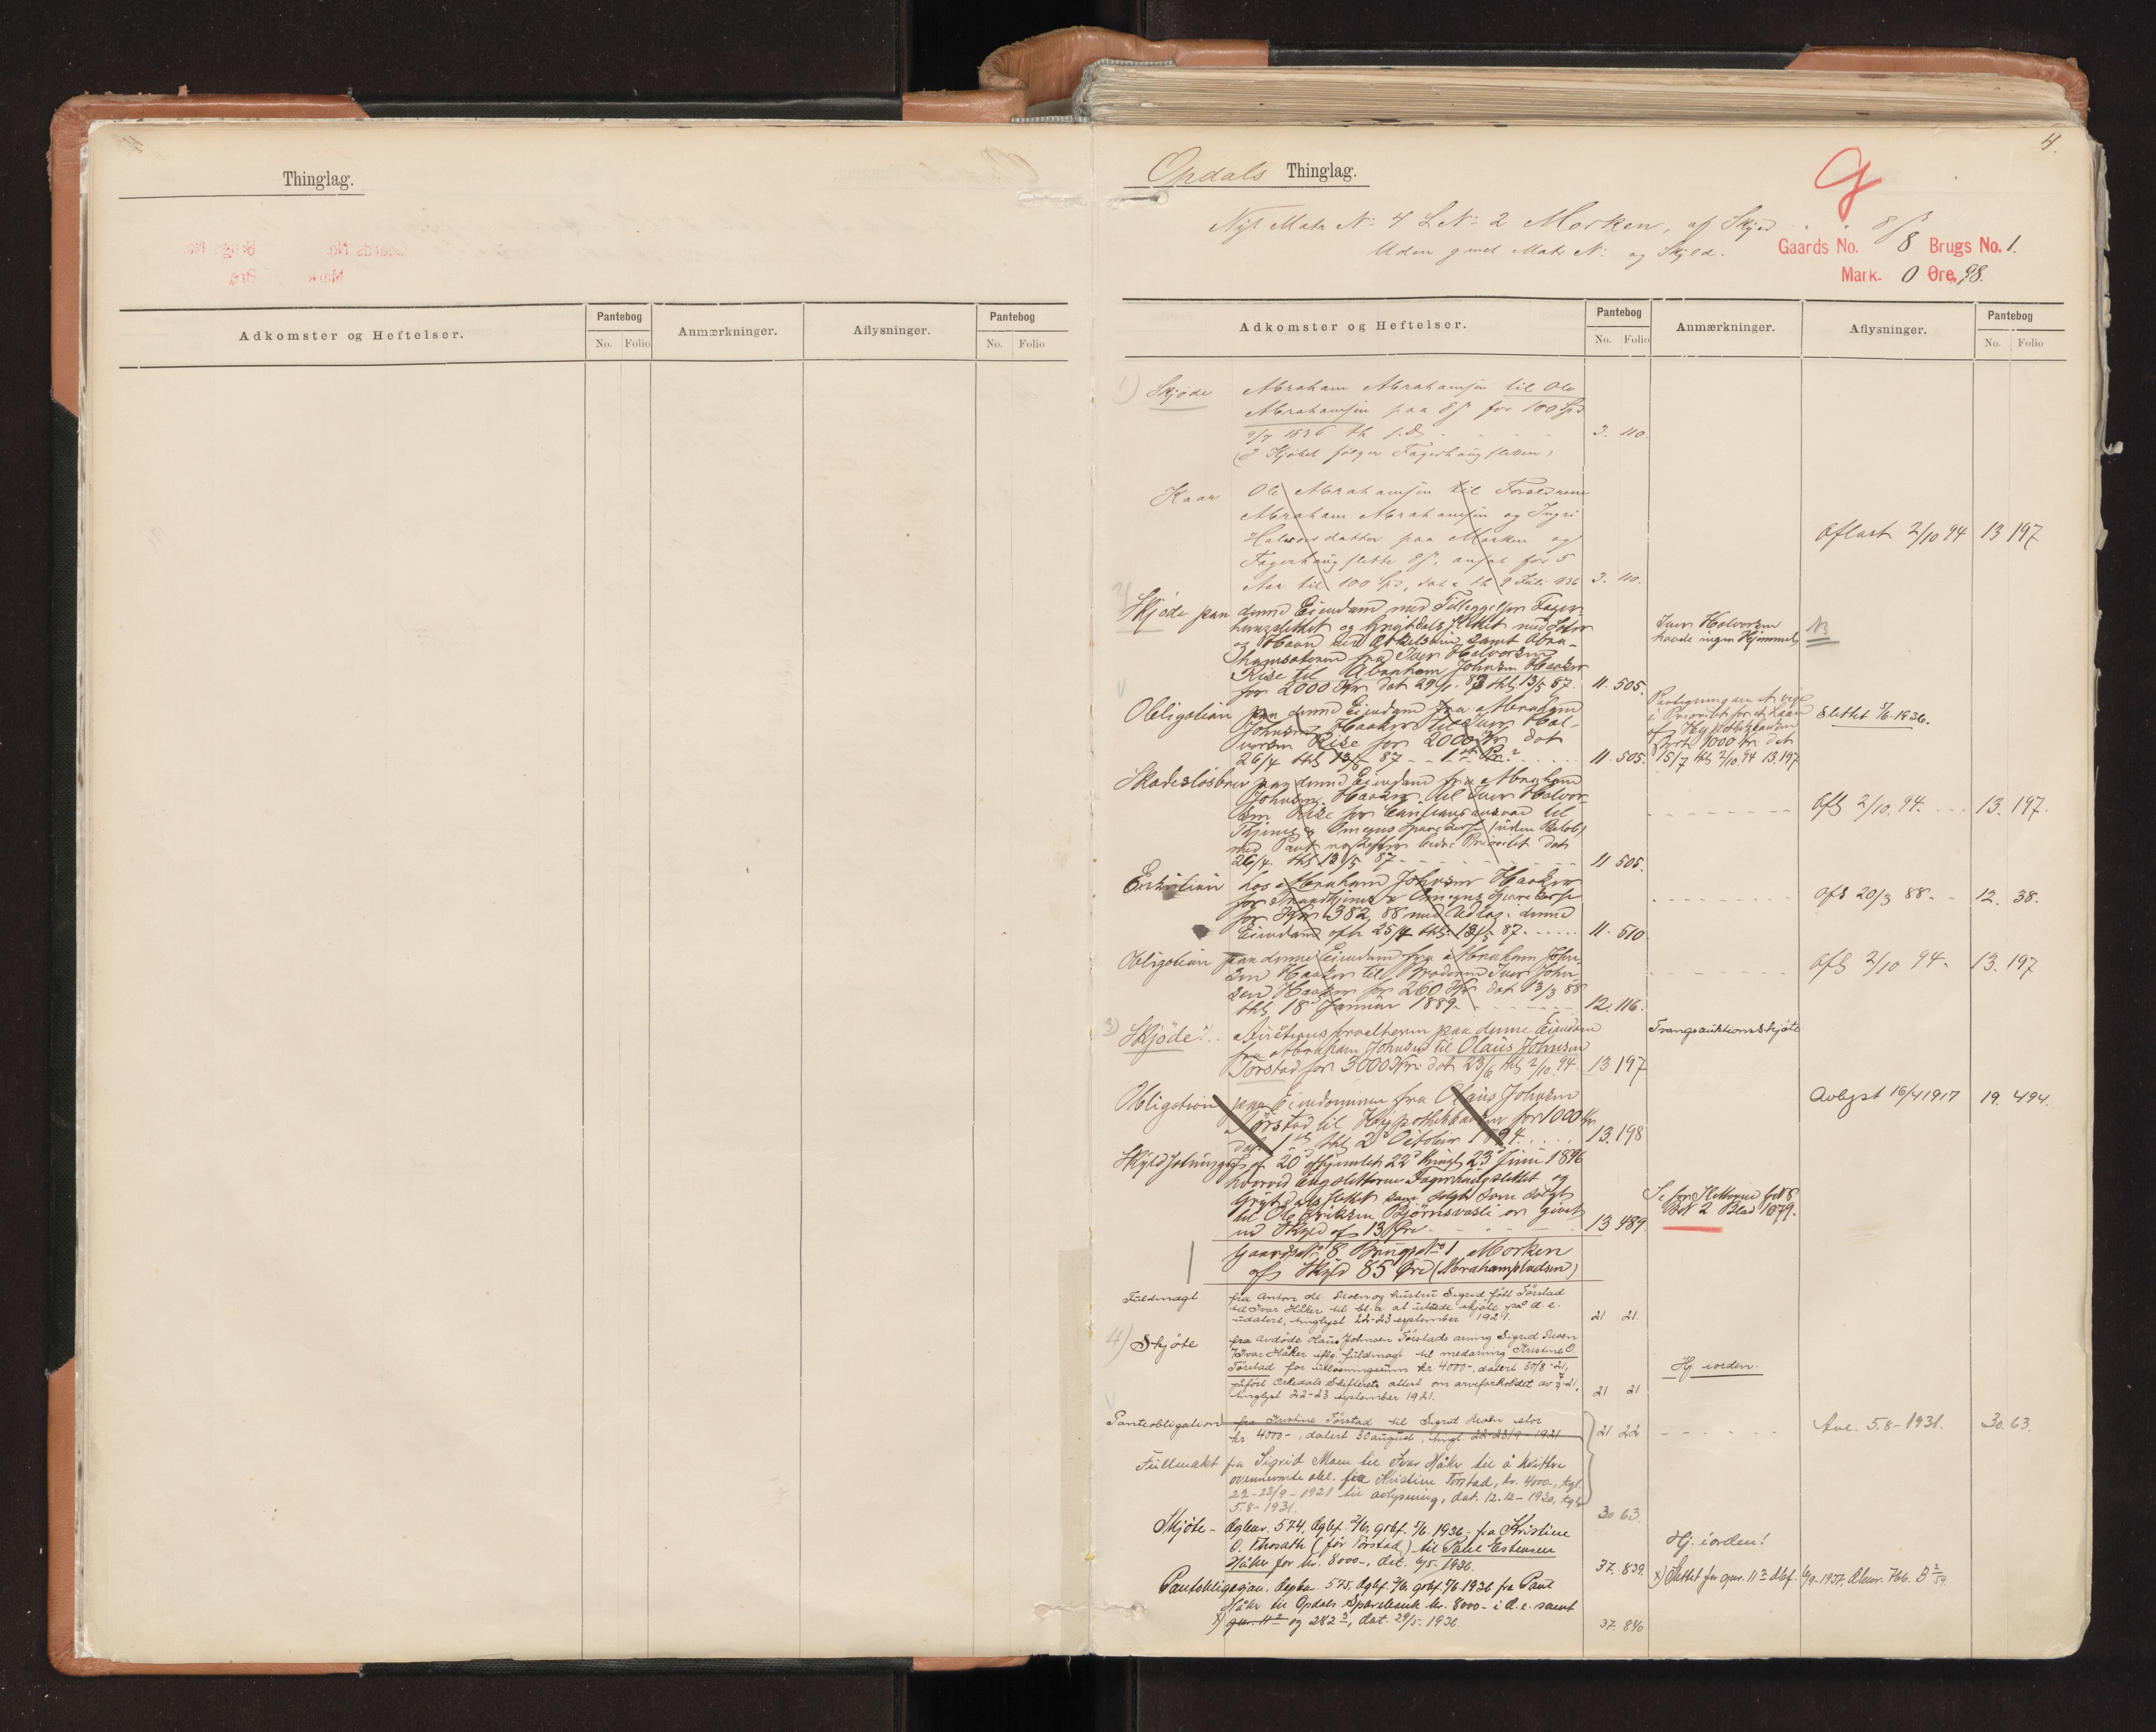 Thinglag.
Adkomster og Heftelser.
Pantebog
No. Folio
Anmærkninger.
Aflysninger.
Pantebog
No. Folio
4.
Opdals Thinglag.
G
Nyt Matr No 4 LNo 2 Morken, af Skyld
Uden gmel Matr No og Skyld.
Gaards No. 8 Brugs No. 1.
Mark. 0 Øre, 98.
Adkomster og Heftelser.
Pantebog
No. Folio
Anmærkninger.
Aflysninger.
Pantebog
No. Folio
1) Skjøde Abraham Abrahamsen til Ole
Abrahamsen paa for 100 Spd
9/7 1836 th s.d. 3. 110.
(I Kjøbet følger Fagerhaugsletten)
Kaar Ole Abrahamsen til Forældrene
Abraham Abrahamsen og Ingri
Halvorsdatter paa Morken og
Fagerhaugslette, ansat for 5
Aar til 100 Spd, dat & th 9 Juli 1836 3. 110.
Aflæst 2/10 94 13 197
2) Skjøde paa denne Eiendom med Tillæggelser Fager-
haugslettet og Grytdalsslettet med
og Havn samt Abra-
hamsæteren fra Iver Halvorsen
Rise til Abraham Johnsen Haaker
for 2000 Kr dat 29/1 83 thl. 13/5 87. 11. 505.
Iver Halvorsen
havde ingen Hjemmel
NB
Obligation paa denne Eiendom fra Abraham
Johnsen Haaker til Iver Hal-
vorsen Rise for 2000 Kr dat
26/4 thl 13/5 87 - - 1ste Pr. 11. 505.
Paategning om at vige
i Prioritet for et Laan
af Hypothekbanken
stort 1000 Kr dat
15/7 thl 2/10 94 13.197
Slettet 5/6-1936.
Skadesløsbrev paa denne Eiendom fra Abraham
Johnsen Haaker til Iver Halvor-
sen Rise for Cautionsansvar til
Thjems og Omegns Sparekasse (uden Beløb)
med Pant næstefter Prioritet dat
26/4 thl 13/5 87 - - - 11 505.
Afl 2/10. 94. - - 13. 197.
Exekution hos Abraham Johnsen Haaker
for Trondhjems & Omegns Sparekasse
for Kr 382,88 med Udlæg i denne
Eiendom afh 25/4 thl. 13/5 87. 11. 510.
Afl 20/3 88 - - 12. 38.
Obligation paa denne Eiendom fra Abraham John-
sen Haaker til Broderen Iver John-
sen Haaker for 260 Kr dat 13/3 88
thl 18 Januar 1889. 12. 116.
Afl 2/10 94 - 13. 197
3) Skjøde: Auctionsforvalteren paa denne Eiendom
fra Abraham Johnsen til Olaus Johnsen
Torstad for 3000 Kr. dat 23/6 thl 2/10. 94. 13 197
Tvangsauktionsskjøte
Obligation paa Eiendommen fra Olaus Johnsen
Tørstad til Hypothekbanken for 1000 Kr
dat 1ste thl 2 October 1894. 13. 198
Avlyst 16/4 1917 19. 494.
Skyldsetningsf af 20 afhjemlet 22 thingl 23 Juni 1896
hvorved Engsletterne Fagerhaugslettet og
Grytdalsslettet som solgt
til Ole Eriksen Bjørnsvasli er givet
en Skyld af 13 Øre 13 489
Se for Sletterne
2 Blad 1079.
Gaards No 8 Brugs No 1 Morken
af Skyld 85 Øre (Abrahampladsen)
Fuldmagt fra Anton M. Moen og hustru Sigrid født Tørstad
til Ivar Håker til bl.a. at utstede skjøte på d. e.
udatert, tinglyst 22-23 september 1921. 21 21.
4) Skjøte fra avdøde Olaus Johnsen Tørstads arving Sigrid Moen
v/ Ivar Håker iflg. fuldmagt til medarving Kristine O.
Tørstad for utløsningssum kr 4000-, datert 30/8-21,
påført Orkedals Skifterets attest om arveforholdet av 7/9-21,
tinglyst 22-23 september 1921. 21 21
Hj. iorden.
Panteobligation fra Kristine Tørstad til Sigrid Moen stor
kr 4000-, datert 30 august, tingl. 22-23/9-1921 21 22
Avl. 5.8-1931. 30. 63
Fullmakt fra Sigrid Moen til Ivar Håker til å kvittere
ovennevnte obl. fra Kristine Torstad, kr. 4000-, tgl.
22-23/9-1921 til avlysning, dat. 12.12-1930, tgl.
5.8-1931. 30 63.
Skjøte - Dagbnr. 574, dgbf. 2/6, grbf. 5/6. 1936 - fra Kristine
O. Thorsath (før Tørstad) til Paul Estensen
Håker for kr. 8000-, dat. 6/5-1936. 37. 839.
Hj. iorden!
Panteobligasjon. Dagbnr. 575, dgbf. 2/6, grbf. 5/6 1936 fra Paul
Håker til Opdals Sparebank kr. 8000- i d. e. samt
x) gnr. 11² og 282³, dat. 29/5-1936. 37. 840
x) Slettet for gnr. 11² dbf. 4/9-1957. Dbnr. 766.